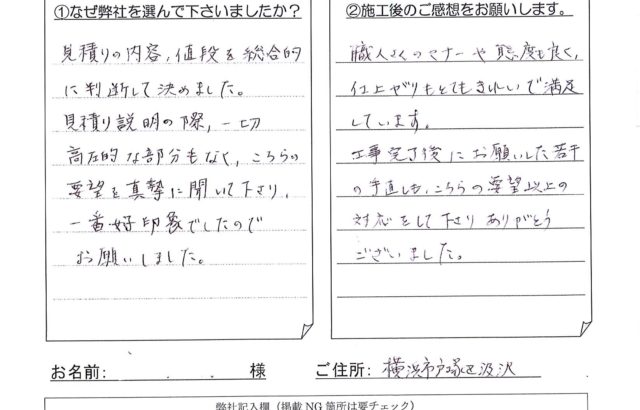 ①なぜ弊社を選んで下さいましたか？
見積りの内容，値段を総合的
に判断して決めました。
見積り説明の際，一切
高圧的な部分もなく，こちらの
要望を真摯に聞いて下さり，
一番好印象でしたので
お願いしました。
②施工後のご感想をお願いします。
職人さんのマナーや態度も良く，
仕上がりもとてもきれいで満足
しています。
工事完了後にお願いした若干
の手直しも，こちらの要望以上の
対応をして下さりありがとう
ございました。
お名前：　様
ご住所：横浜市戸塚区汲沢
弊社記入欄（掲載NG箇所は要チェック）